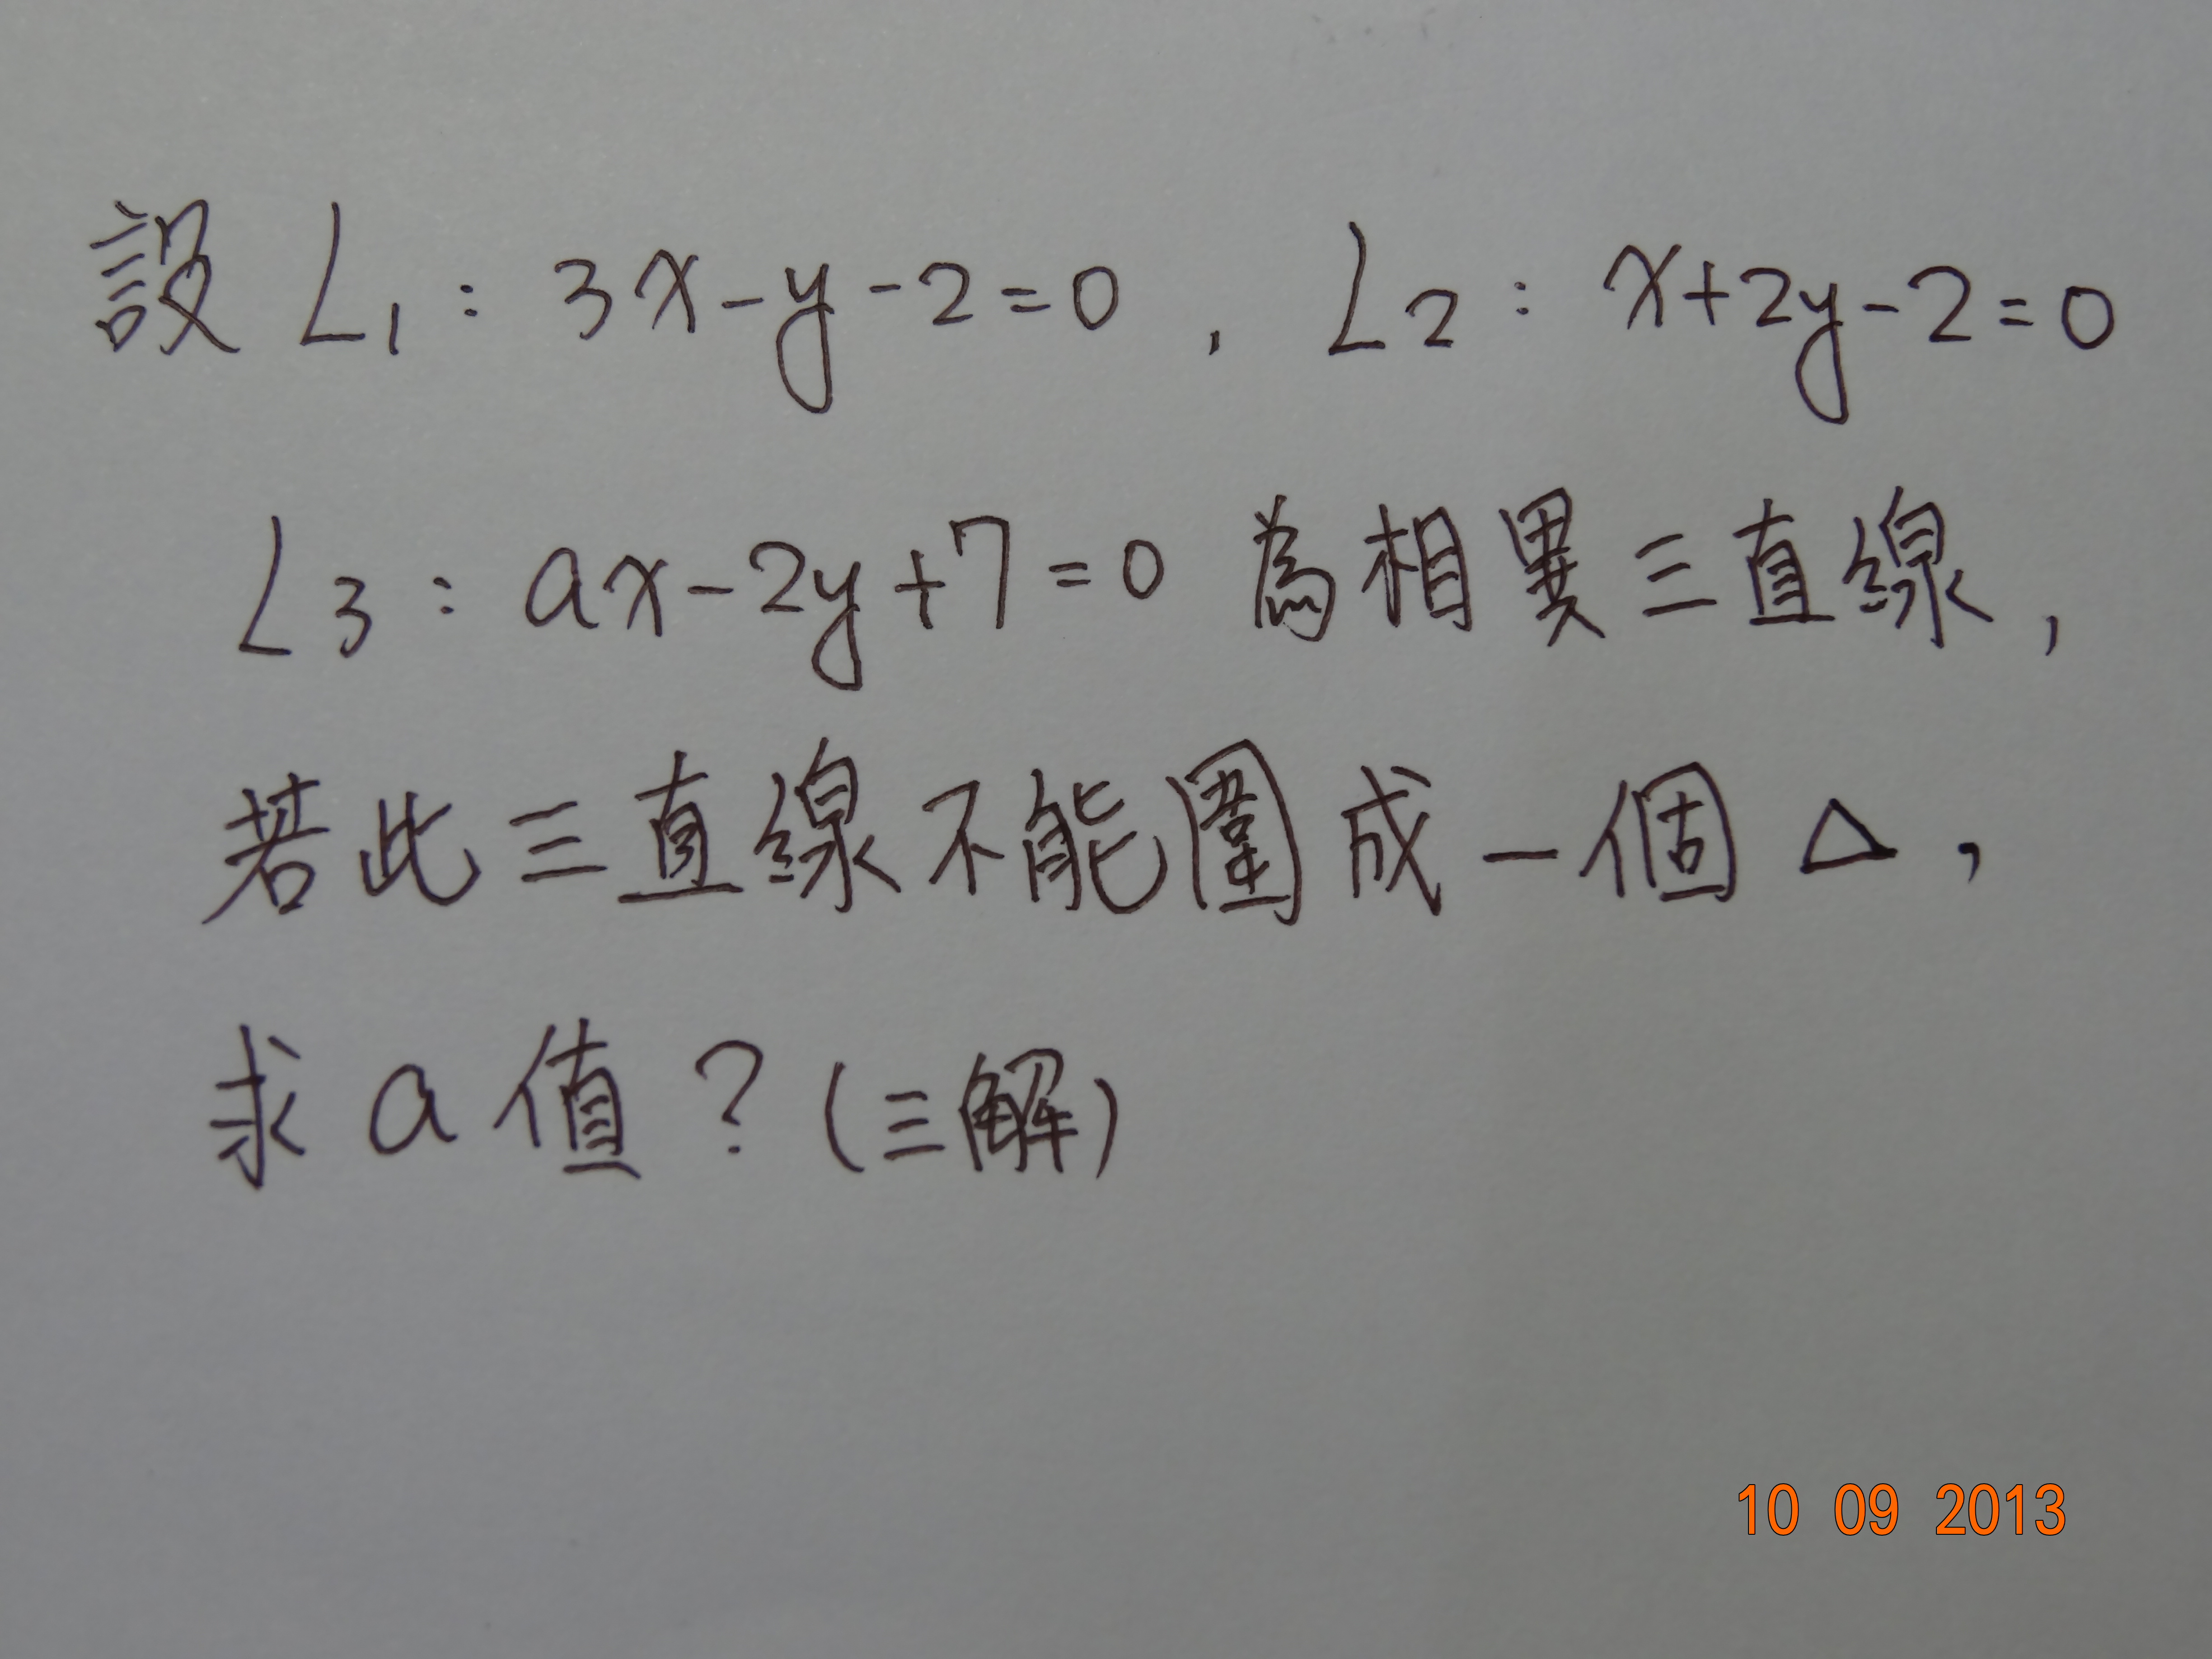 設 L₁：3x-y-2=0 , L₂：x+2y-2=0
L₃：ax-2y+7=0 為相異三直線,
若此三直線不能圍成一個△,
求a值？(三解)
10 09 2013